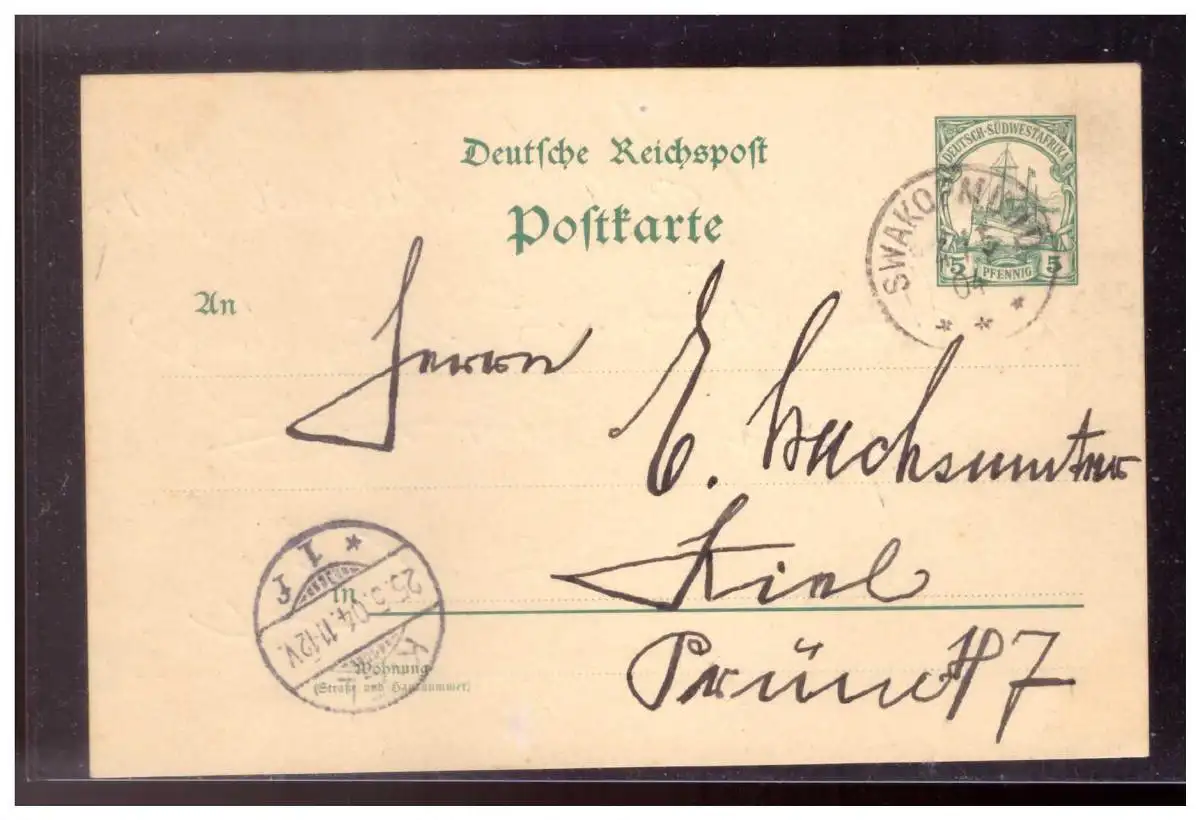 Deutsche Reichspost
Postkarte
DEUTSCH-SÜDWESTAFRIKA
5 PFENNIG 5
SWAKOPMUND
04
* * *
An
Herrn
E. Wachsmuth
in
Kiel
* 1 f
25.5.04.11-12V.
Wohnung
(Straße und Hausnummer)
Prüne 7